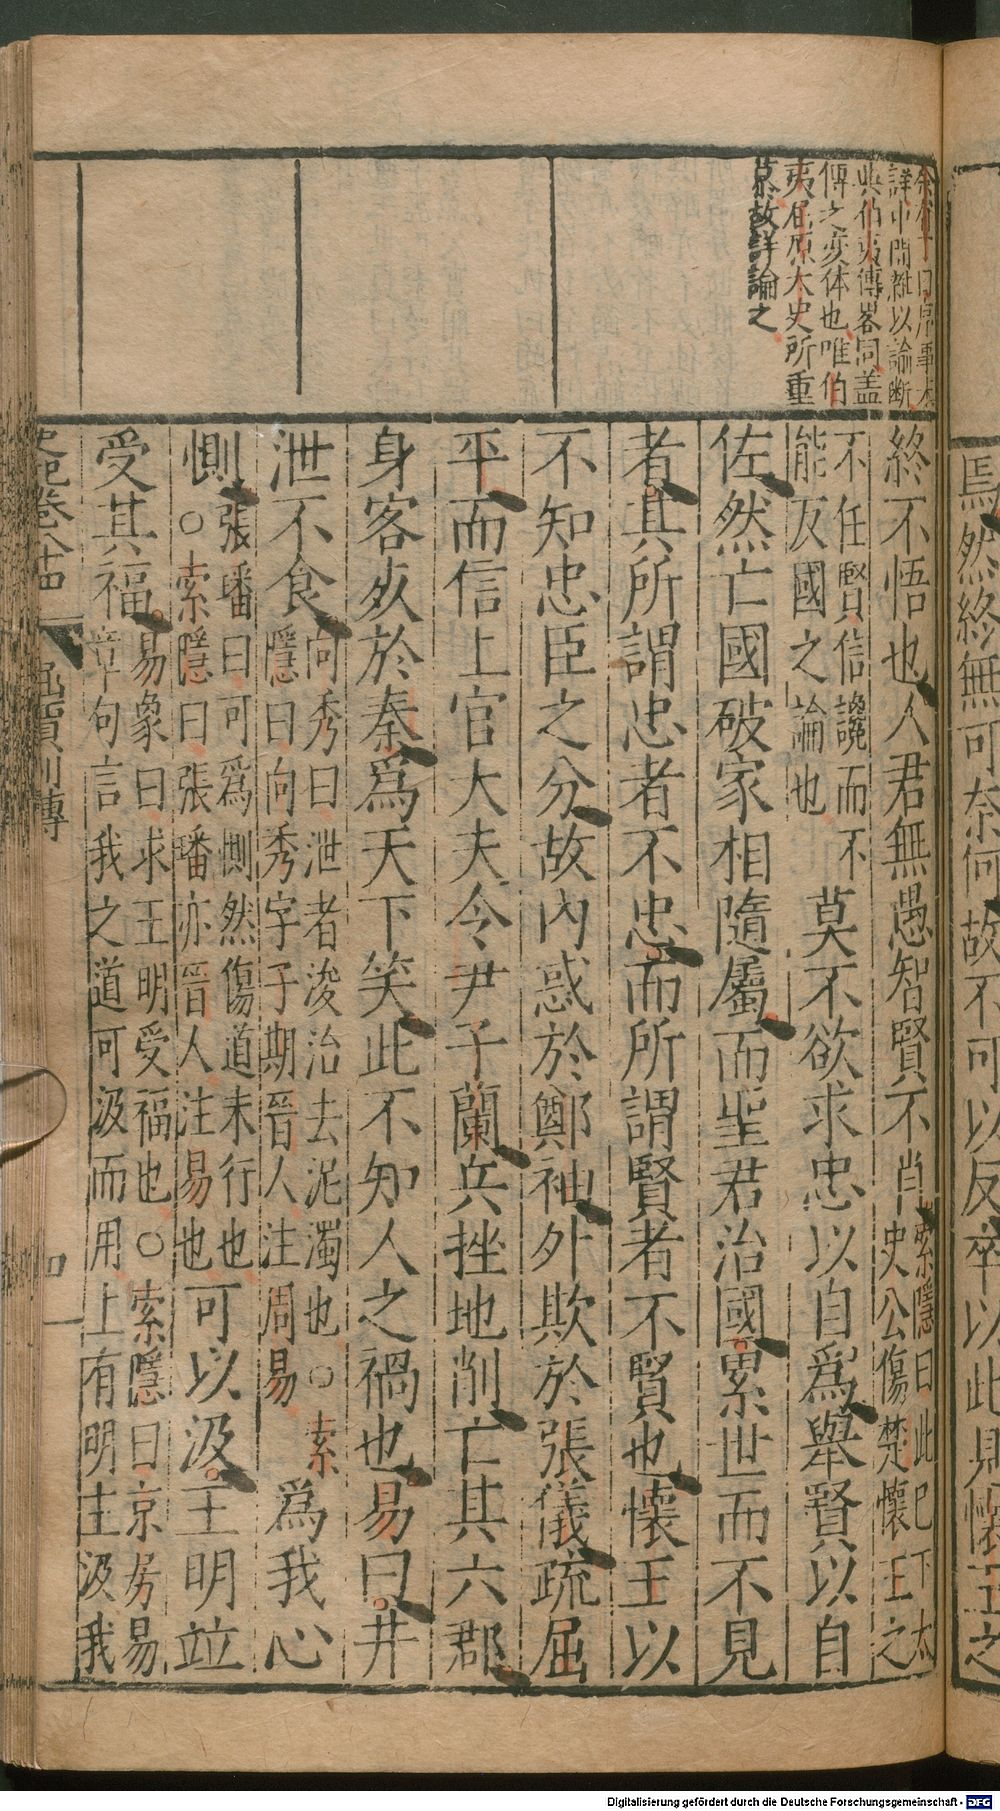 焉然終無可奈何故不可以反卒以此見懷王之
余有丁曰序事未
詳中間雜以論斷
與伯夷傳畧同盖
傳之变体也唯伯
夷屈原太史所重
慕故詳論之
終不悟也人君無愚智賢不肖索隱曰此已下太
史公傷楚懷王之
不任賢信讒而不
能反國之論也莫不欲求忠以自爲舉賢以自
佐然亡國破家相隨屬而聖君治國累世而不見
者其所謂忠者不忠而所謂賢者不賢也懷王以
不知忠臣之分故內惑於鄭袖外欺於張儀疏屈
平而信上官大夫令尹子蘭兵挫地削亡其六郡
身客死於秦爲天下笑此不知人之禍也易曰井
泄不食向秀曰泄者浚治去泥濁也○索
隱曰向秀字子期晉人注周易爲我心
惻張璠曰可爲惻然傷道未行也
○索隱曰張璠亦晉人注易也可以汲王明並
受其福易象曰求王明受福也○索隱曰京房易
章句言我之道可汲而用上有明主汲我
史記卷八十四 屈賈列傳 四
Digitalisierung gefördert durch die Deutsche Forschungsgemeinschaft - DFG